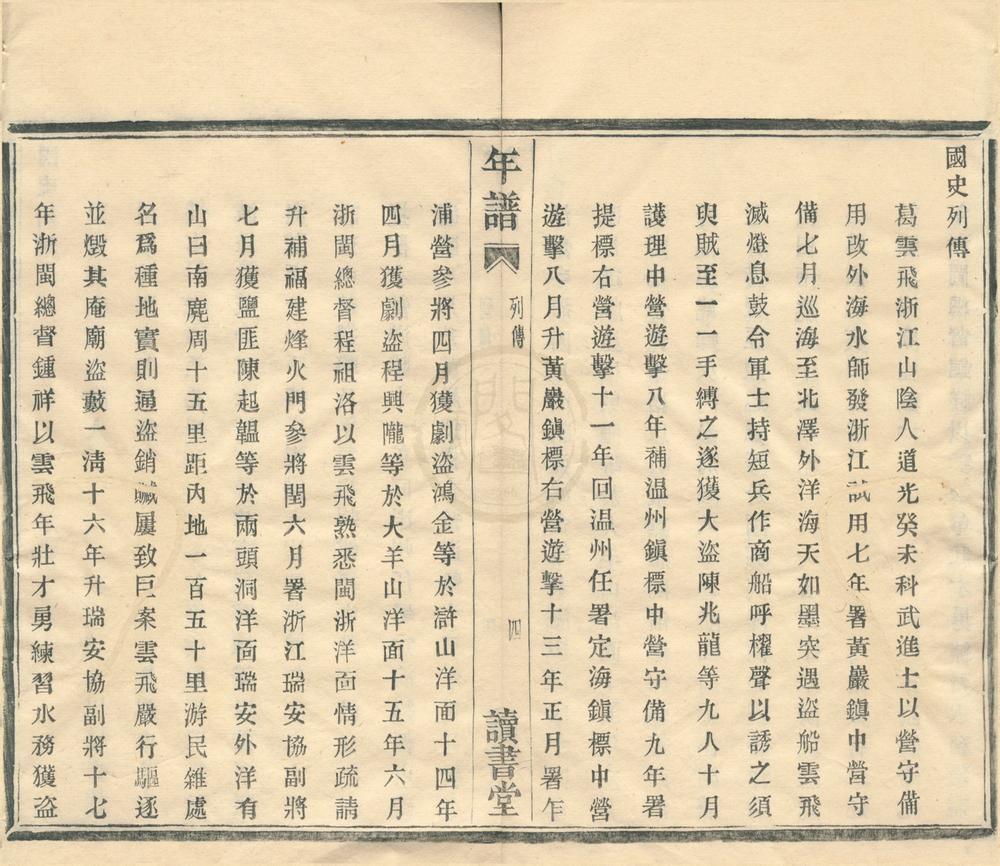 國史列傳
葛雲飛浙江山陰人道光癸未科武進士以營守備
用改外海水師發浙江試用七年署黃巖鎮中營守
備七月巡海至北澤外洋海天如墨突遇盜船雲飛
滅燈息鼓令軍士持短兵作商船呼櫂聲以誘之須
臾賊至一一手縛之逐獲大盜陳兆龍等九人十月
護理中營遊擊八年補温州鎮標中營守備九年署
提標右營遊擊十一年回温州任署定海鎮標中營
遊擊八月升黃巖鎮標右營遊擊十三年正月署乍
年譜
列傳
四
讀書堂
浦營參將四月獲劇盜鴻金等於滸山洋面十四年
四月獲劇盜程興隴等於大羊山洋面十五年六月
浙閩總督程祖洛以雲飛熟悉閩浙洋面情形疏請
升補福建烽火門參將閏六月署浙江瑞安協副將
七月獲鹽匪陳起韞等於兩頭洞洋面瑞安外洋有
山曰南麂周十五里距內地一百五十里游民雜處
名爲種地實則通盜銷贓屢致巨案雲飛嚴行驅逐
並燬其庵廟盜藪一淸十六年升瑞安協副將十七
年浙閩總督鍾祥以雲飛年壯才勇練習水務獲盜